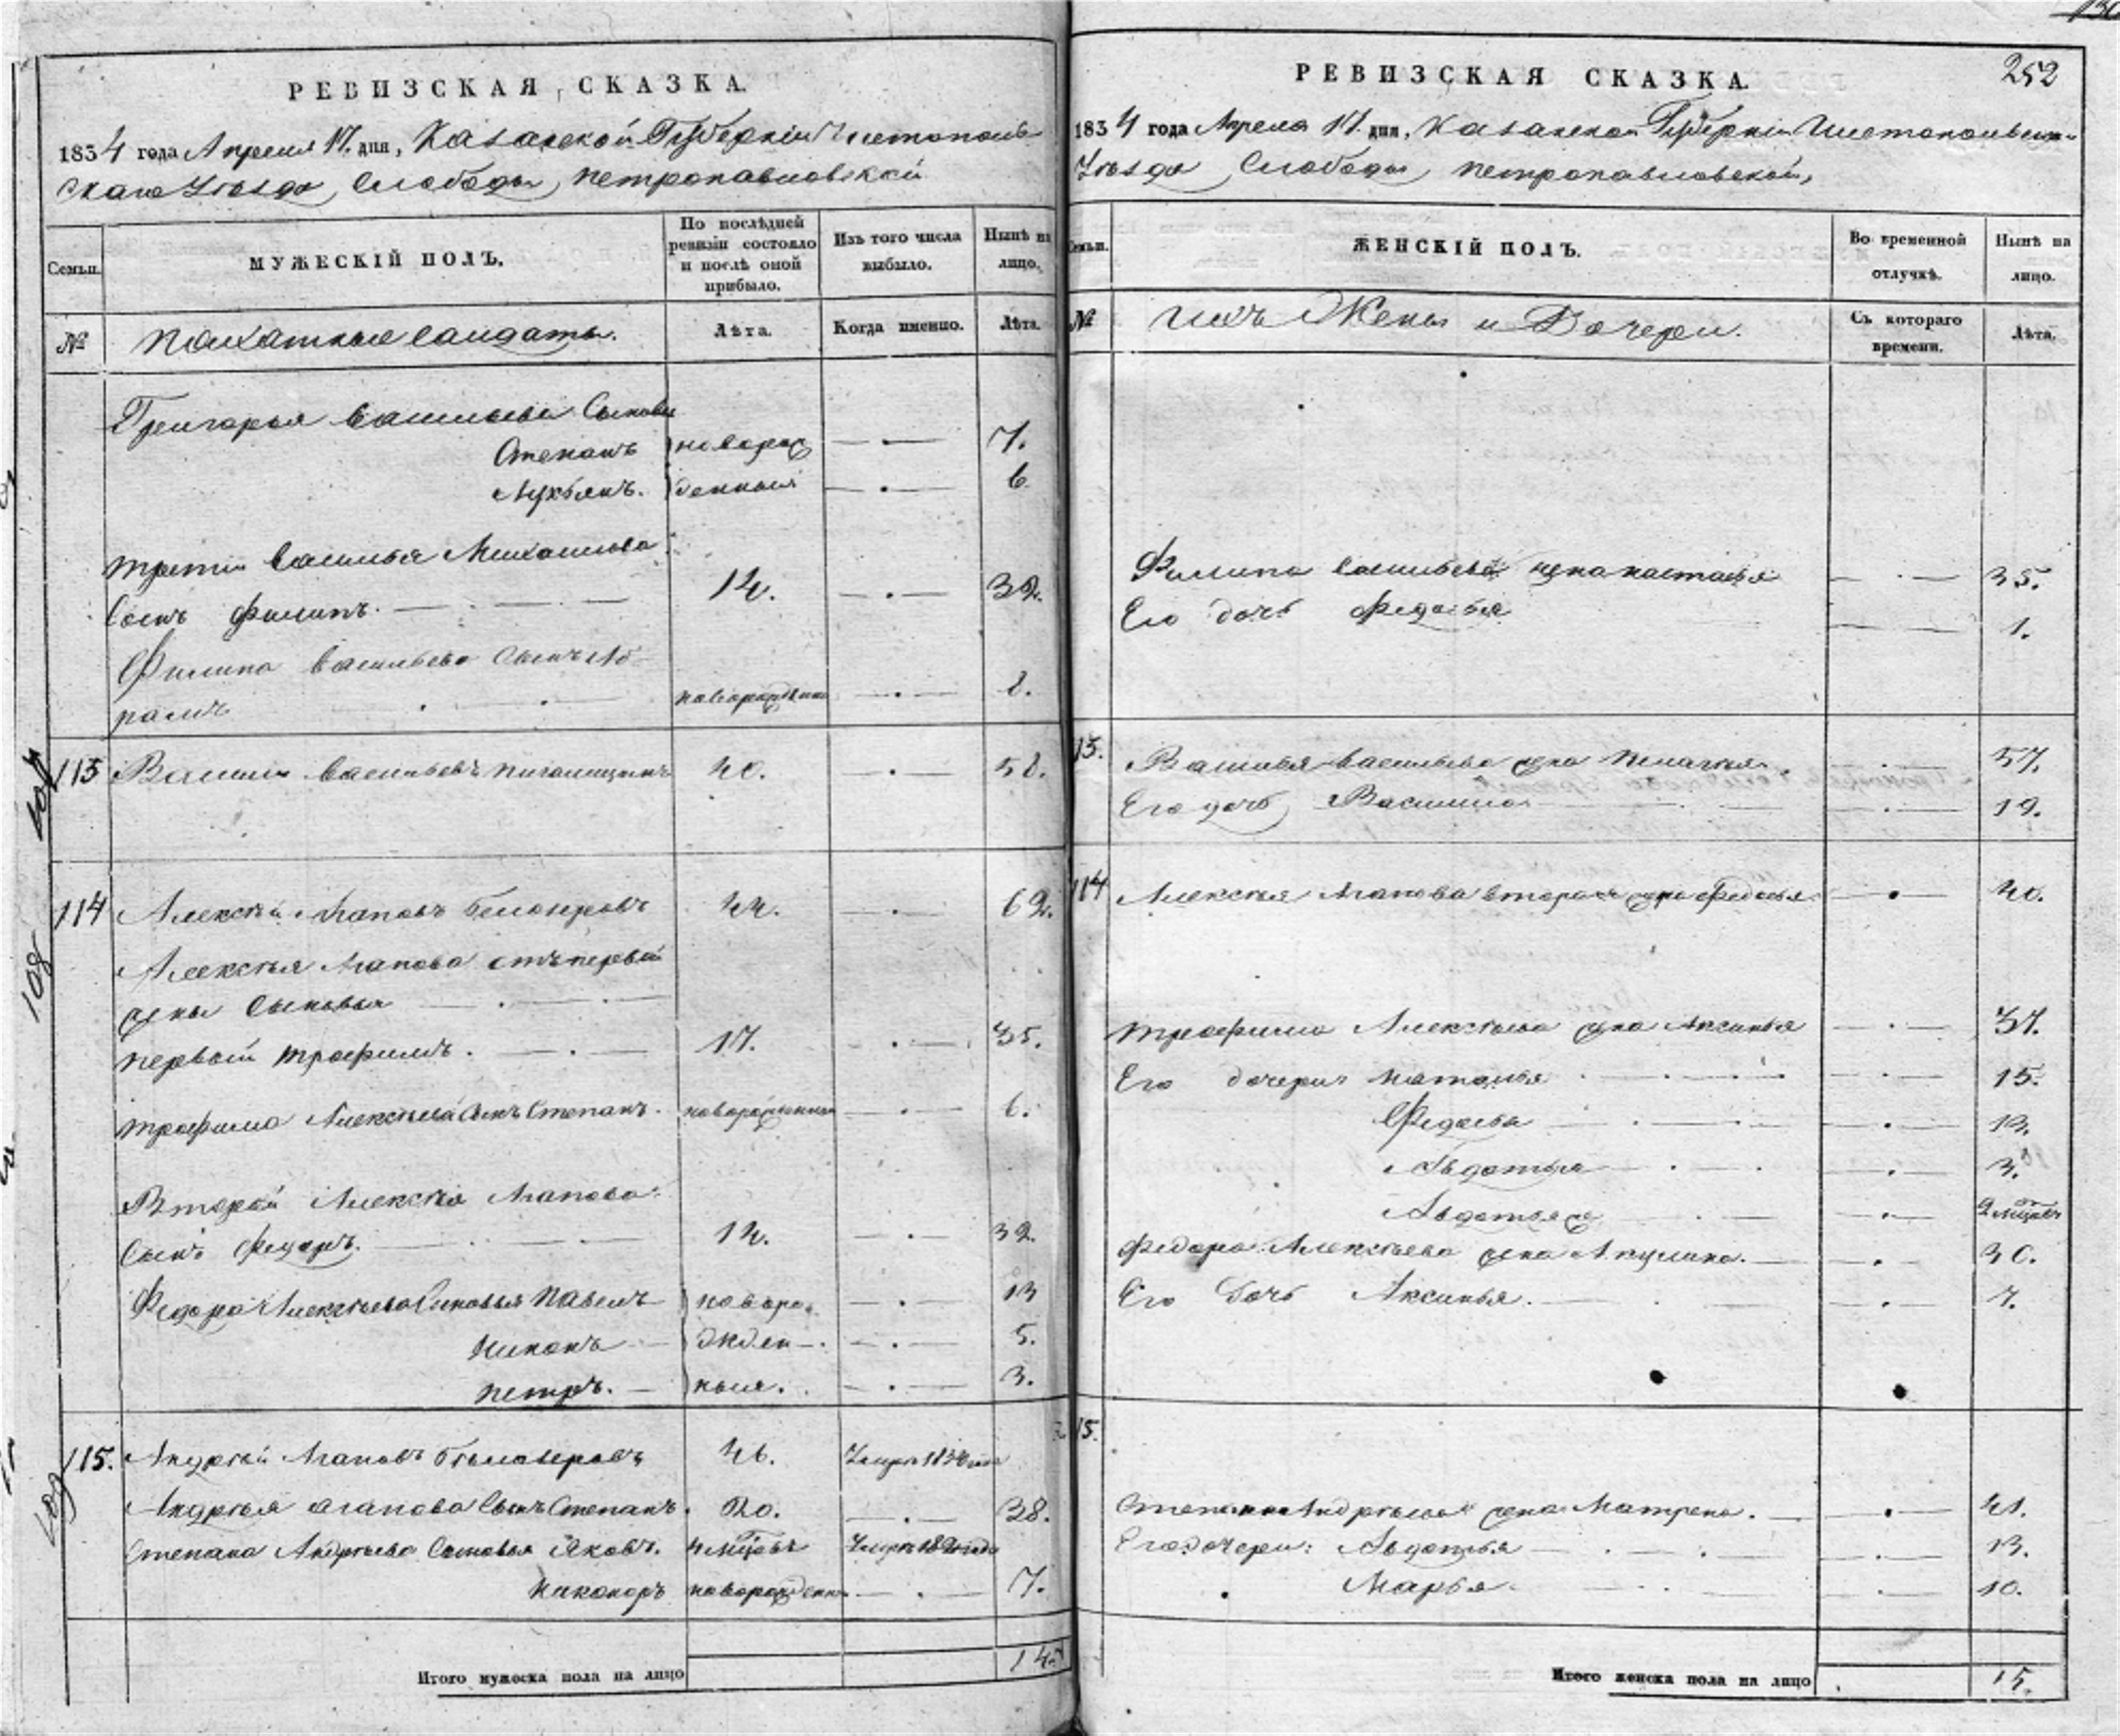 РЕВИЗСКАЯ СКАЗКА.
1834 года Апреля 17. дня, Казанской Губернии Чистополь-
скаго Уезда, Слободы Петропавловской
Семьи.
МУЖЕСКІЙ ПОЛЪ.
По послѣдней ревизіи состояло и послѣ оной прибыло.
Изъ того числа выбыло.
Нынѣ на лицо.
№
Пахатные Салдаты.
Лѣта.
Когда именно.
Лѣта.
Григорья Васильева Сыновья
Степанъ новорож 7.
Лукьянъ. денныя 6
Третій Васильья Михайлова
Сынъ Филипъ. 14. 32.
Филипа Васильева Сынъ Аб-
рамъ новорожденной 8.
113 Василий Васильевъ 40. 58.
114 Алексѣй Агаповъ Белозеровъ 44. 62.
Алексѣя Агапова отъ первой
жены Сыновья
Первый Трофимъ. 17. 35.
Трофима Алексѣева Сынъ Степанъ. новорожденной 6.
Второй Алексѣя Агапова
Сынъ Федоръ. 14. 32.
Федора Алексѣева Сыновья Павелъ новоро- 13
Никонъ жден- 5.
Петръ. ныя. 3.
115. Андрѣй Агаповъ Бѣлозеровъ 46.
Андрѣя Агапова Сынъ Степанъ. 20. 38.
Степана Андрѣева Сыновья Яковъ. 4 мѣсяцовъ
Никоноръ новорожденной 7.
Итого мужеска пола на лицо 14
252
РЕВИЗСКАЯ СКАЗКА.
1834 года Апреля 17. дня, Казанской Губерніи Чистопольскаго
Уезда Слободы Петропавловской,
Семьи.
ЖЕНСКІЙ ПОЛЪ.
Во временной отлучкѣ.
Нынѣ на лицо.
№
Ихъ Жены и Дочери.
Съ котораго времени.
Лѣта.
Филипа Васильева жена Настасья 35.
Его дочь Федосья 1.
13. Василья Васильева жена Пелагея. 57.
Его дочь Василиса 19.
114 Алексѣя Агапова вторая жена Федосья 40.
Трофима Алексѣева жена Аксинья 37.
Его дочери Наталья 15.
Федосья 13.
Авдотья 3.
Авдотья ж 2 мѣсяцовъ
Федора Алексѣева жена Акулина. 30.
Его Дочь Аксинья. 7.
15.
Степана Андрѣева жена Матрена. 41.
Его дочери: Авдотья 13.
Марья 10.
Итого женска пола на лицо 15.